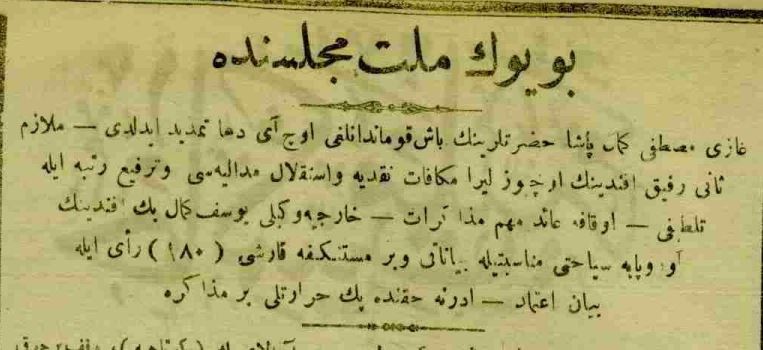 بويوك ملت مجلسنده
غازى مصطفى كمال پاشا حضرتلرينك باش قوماندانلغى اوچ آى دها تمديد ايدلدى — ملازم
ثانى رفيق افندينك اوچوز ليرا مكافات نقديه واستقلال مداليه‌سى وترفيع رتبه ايله
تلطيفى — اوقافه عائد مهم مذاكرات — خارجيه وكيلى يوسف كمال بك افندينك
آوروپايه سياحتى مناسبتيله بياناتى وبر مستنكفه قارشى (۱۸۰) رأى ايله
بيان اعتماد — ادرنه حقنده پك حرارتلى بر مذاكره